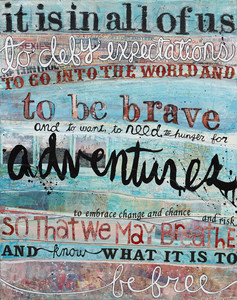 it is in all of us
to defy expectations
TO GO INTO THE WORLD AND
to be brave
and to want, to need, to hunger for
adventures
to embrace change and chance and risk
SO THAT WE MAY BREATHE
AND know WHAT IT IS TO
be free